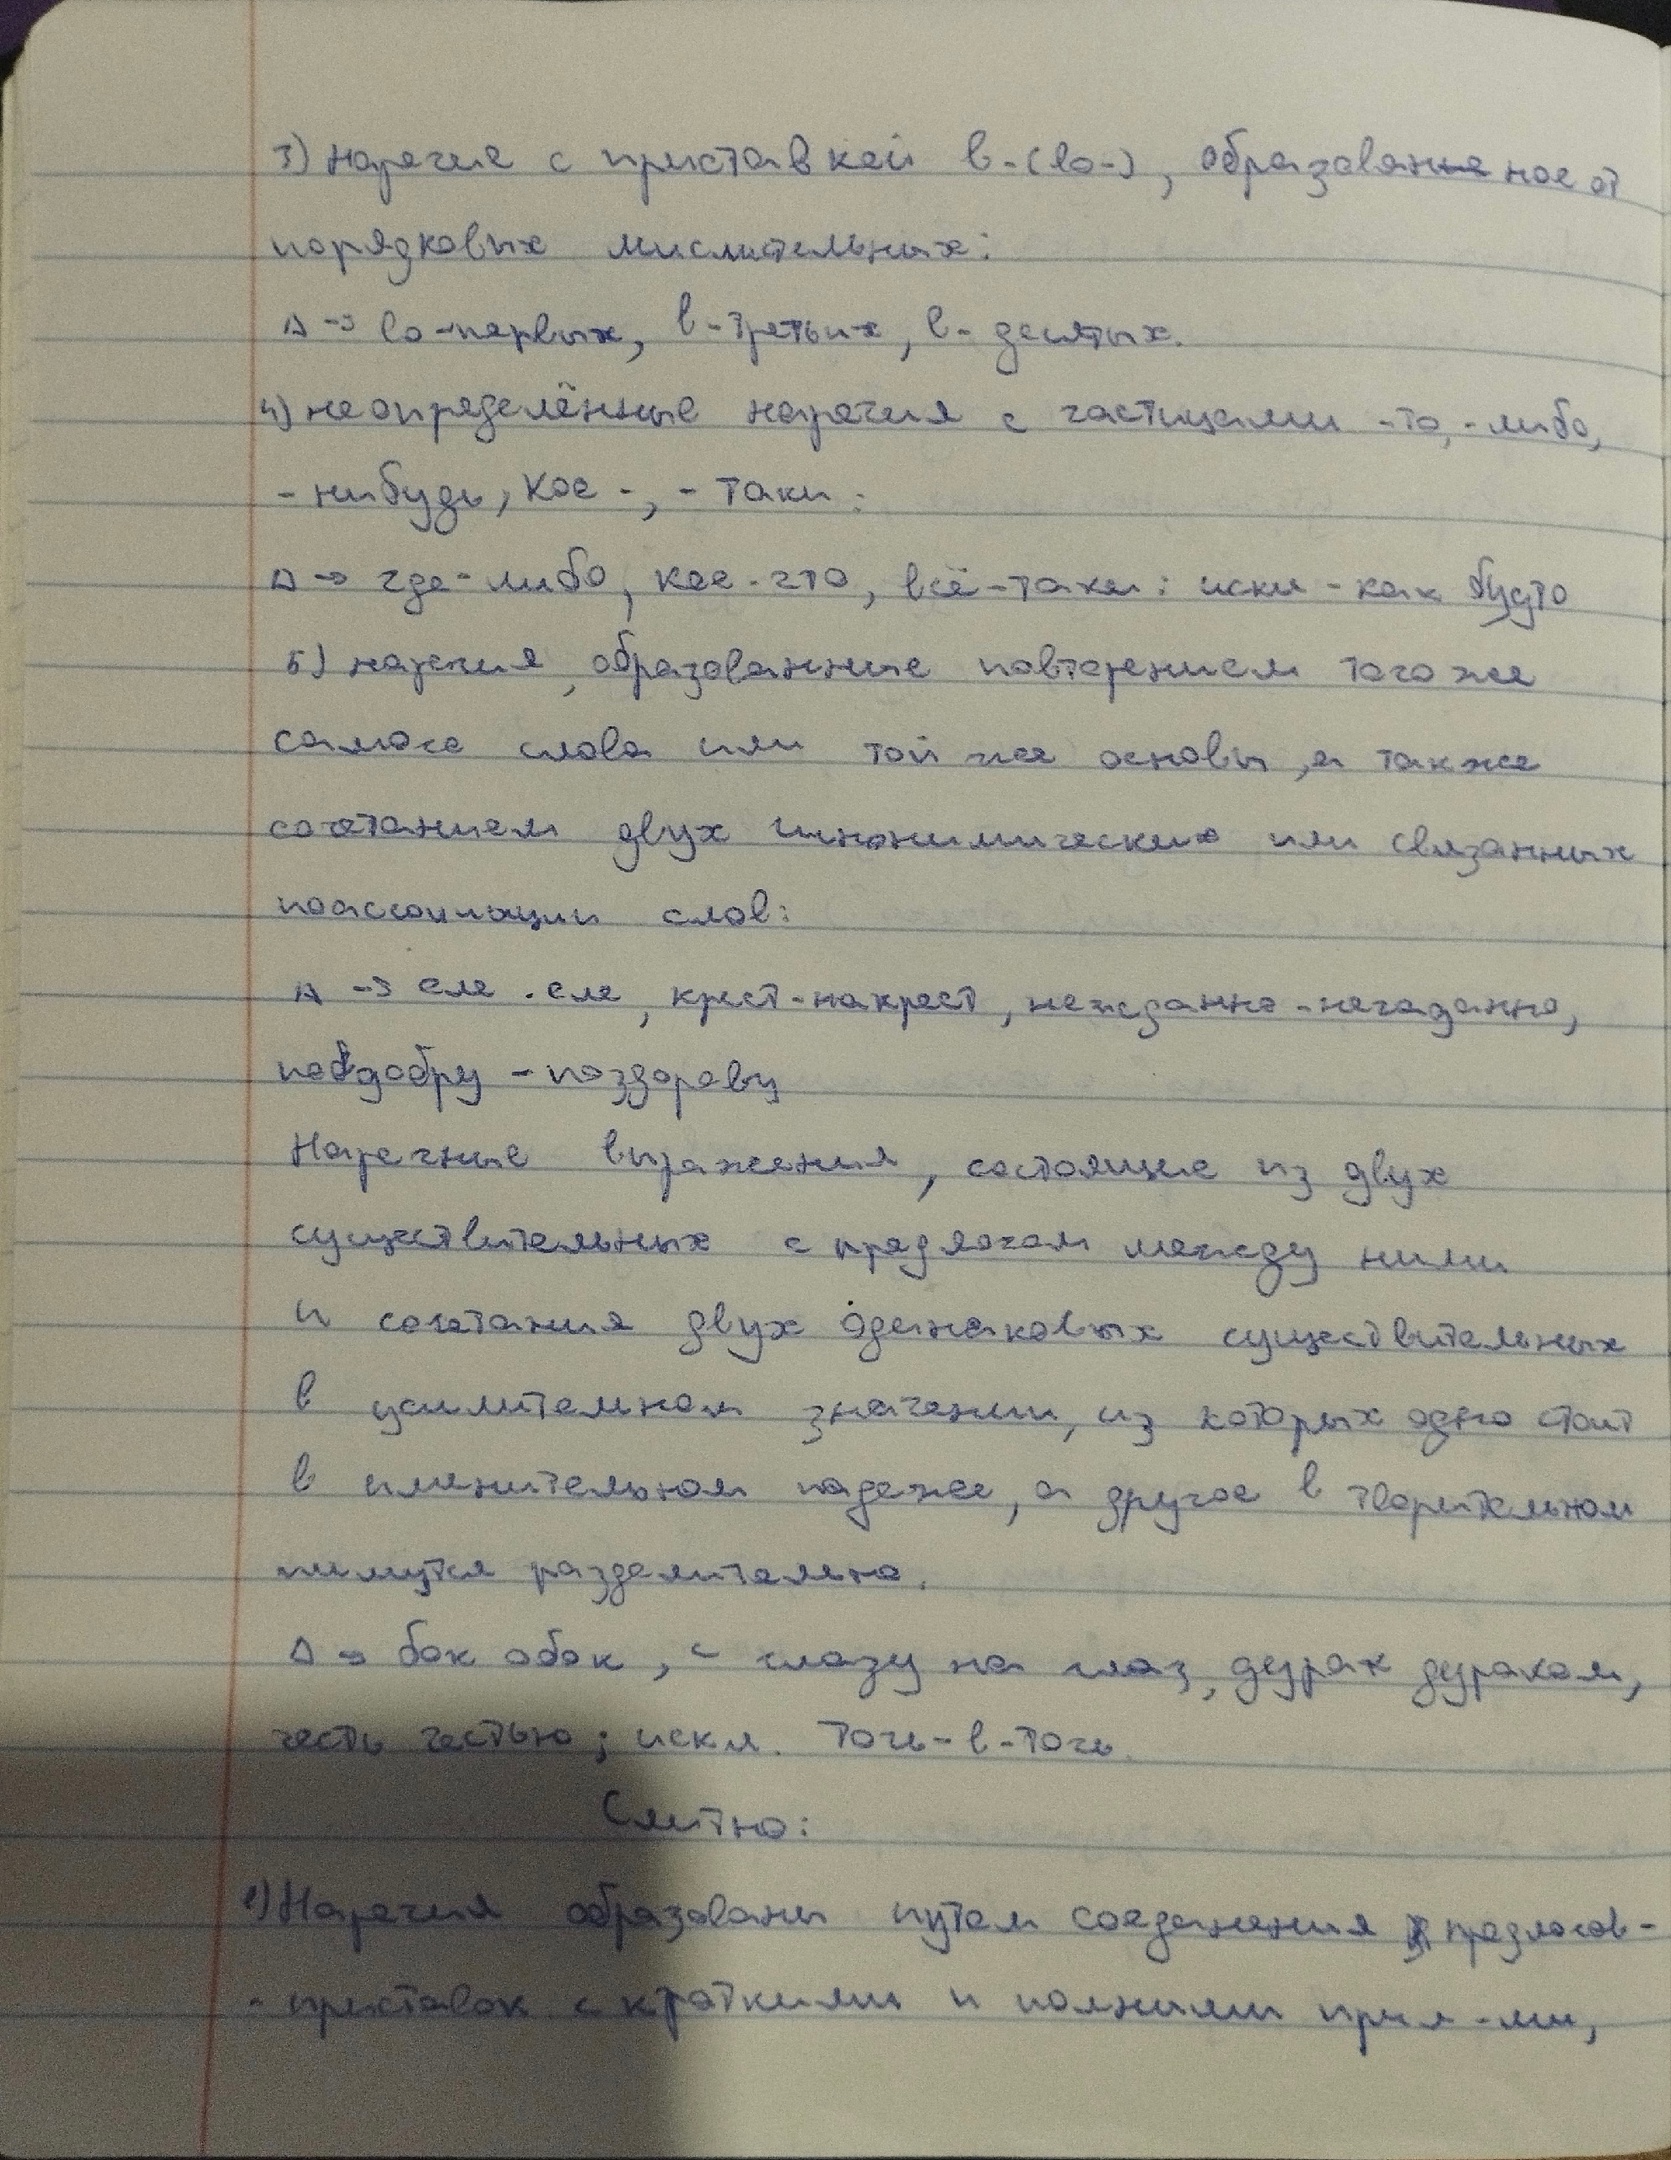 3) Наречие с приставкой в-(во-), образованное от
порядковых числительных:
Δ → во-первых, в-третьих, в-десятых.
4) неопределённые наречия с частицами -то, -либо,
- нибудь, кое -, - таки:
Δ → где-либо, кое-что, всё-таки: искл - как будто
5) наречия, образованные повторением того же
самого слова или той же основы, а также
сочетанием двух синонимических или связанных
по ассоциации слов:
Δ → еле-еле, крест-накрест, нежданно-негаданно,
подобру - поздорову
Наречные выражения, состоящие из двух
существительных с предлогом между ними
и сочетания двух одинаковых существительных
в усилительном значении, из которых одно стоит
в именительном падеже, а другое в творительном
пишутся разделительно.
Δ → бок о бок, с глазу на глаз, дурак дураком,
честь честью; искл. точь-в-точь.
Слитно:
1) Наречия образованы путем соединения предлогов-
- приставок с краткими и полными прил-ми,